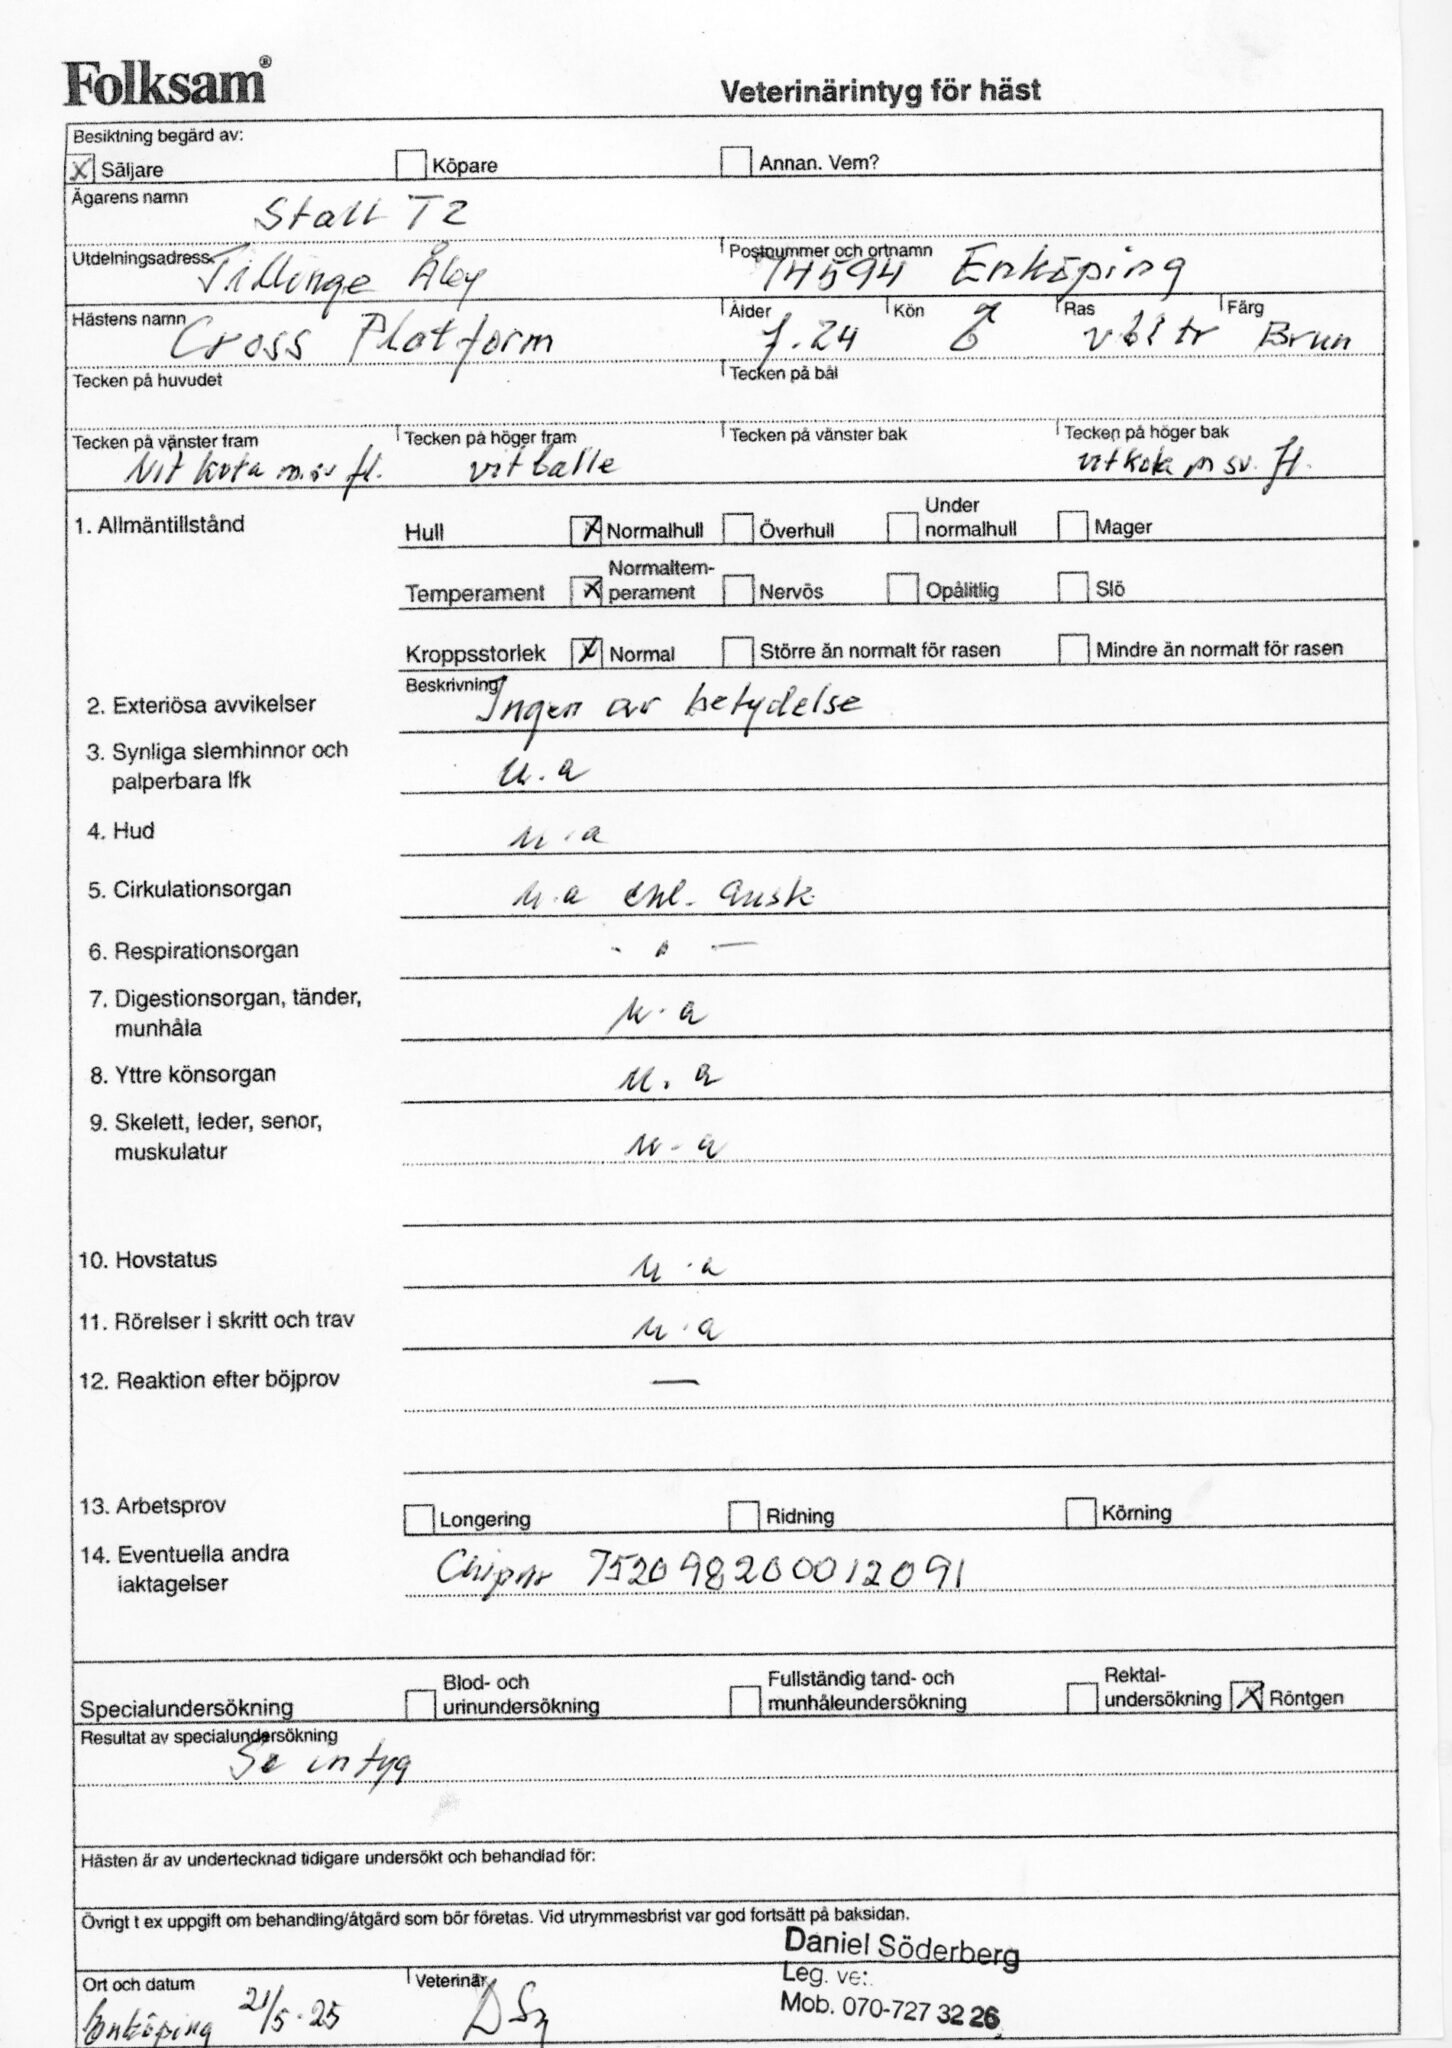 Folksam®
Veterinärintyg för häst
Besiktning begärd av:
X Säljare Köpare Annan. Vem?
Ägarens namn
Stall T2
Utdelningsadress Postnummer och ortnamn
Tillinge Åby 74594 Enköping
Hästens namn Ålder Kön Ras Färg
Cross Platform f. 24 ♂ vbl tr Brun
Tecken på huvudet Tecken på bål
Tecken på vänster fram Tecken på höger fram Tecken på vänster bak Tecken på höger bak
Vit kota m. sv fl. vit balle vit kota m sv. fl.
1. Allmäntillstånd
Hull X Normalhull Överhull Under normalhull Mager
Temperament X Normaltem-
perament Nervös Opålitlig Slö
Kroppsstorlek X Normal Större än normalt för rasen Mindre än normalt för rasen
Beskrivning
2. Exteriösa avvikelser Ingen av betydelse
3. Synliga slemhinnor och
palperbara lfk u.a
4. Hud u.a
5. Cirkulationsorgan u.a enl. ausk
6. Respirationsorgan - " -
7. Digestionsorgan, tänder,
munhåla u.a
8. Yttre könsorgan u.a
9. Skelett, leder, senor,
muskulatur u.a
10. Hovstatus u.a
11. Rörelser i skritt och trav u.a
12. Reaktion efter böjprov —
13. Arbetsprov Longering Ridning Körning
14. Eventuella andra
iaktagelser Chipnr 752098200012091
Specialundersökning Blod- och
urinundersökning Fullständig tand- och
munhåleundersökning Rektal-
undersökning X Röntgen
Resultat av specialundersökning
Se intyg
Hästen är av undertecknad tidigare undersökt och behandlad för:
Övrigt t ex uppgift om behandling/åtgärd som bör företas. Vid utrymmesbrist var god fortsätt på baksidan.
Daniel Söderberg
Leg. ve
Mob. 070-727 32 26
Ort och datum Veterinär
Enköping 21/5-25